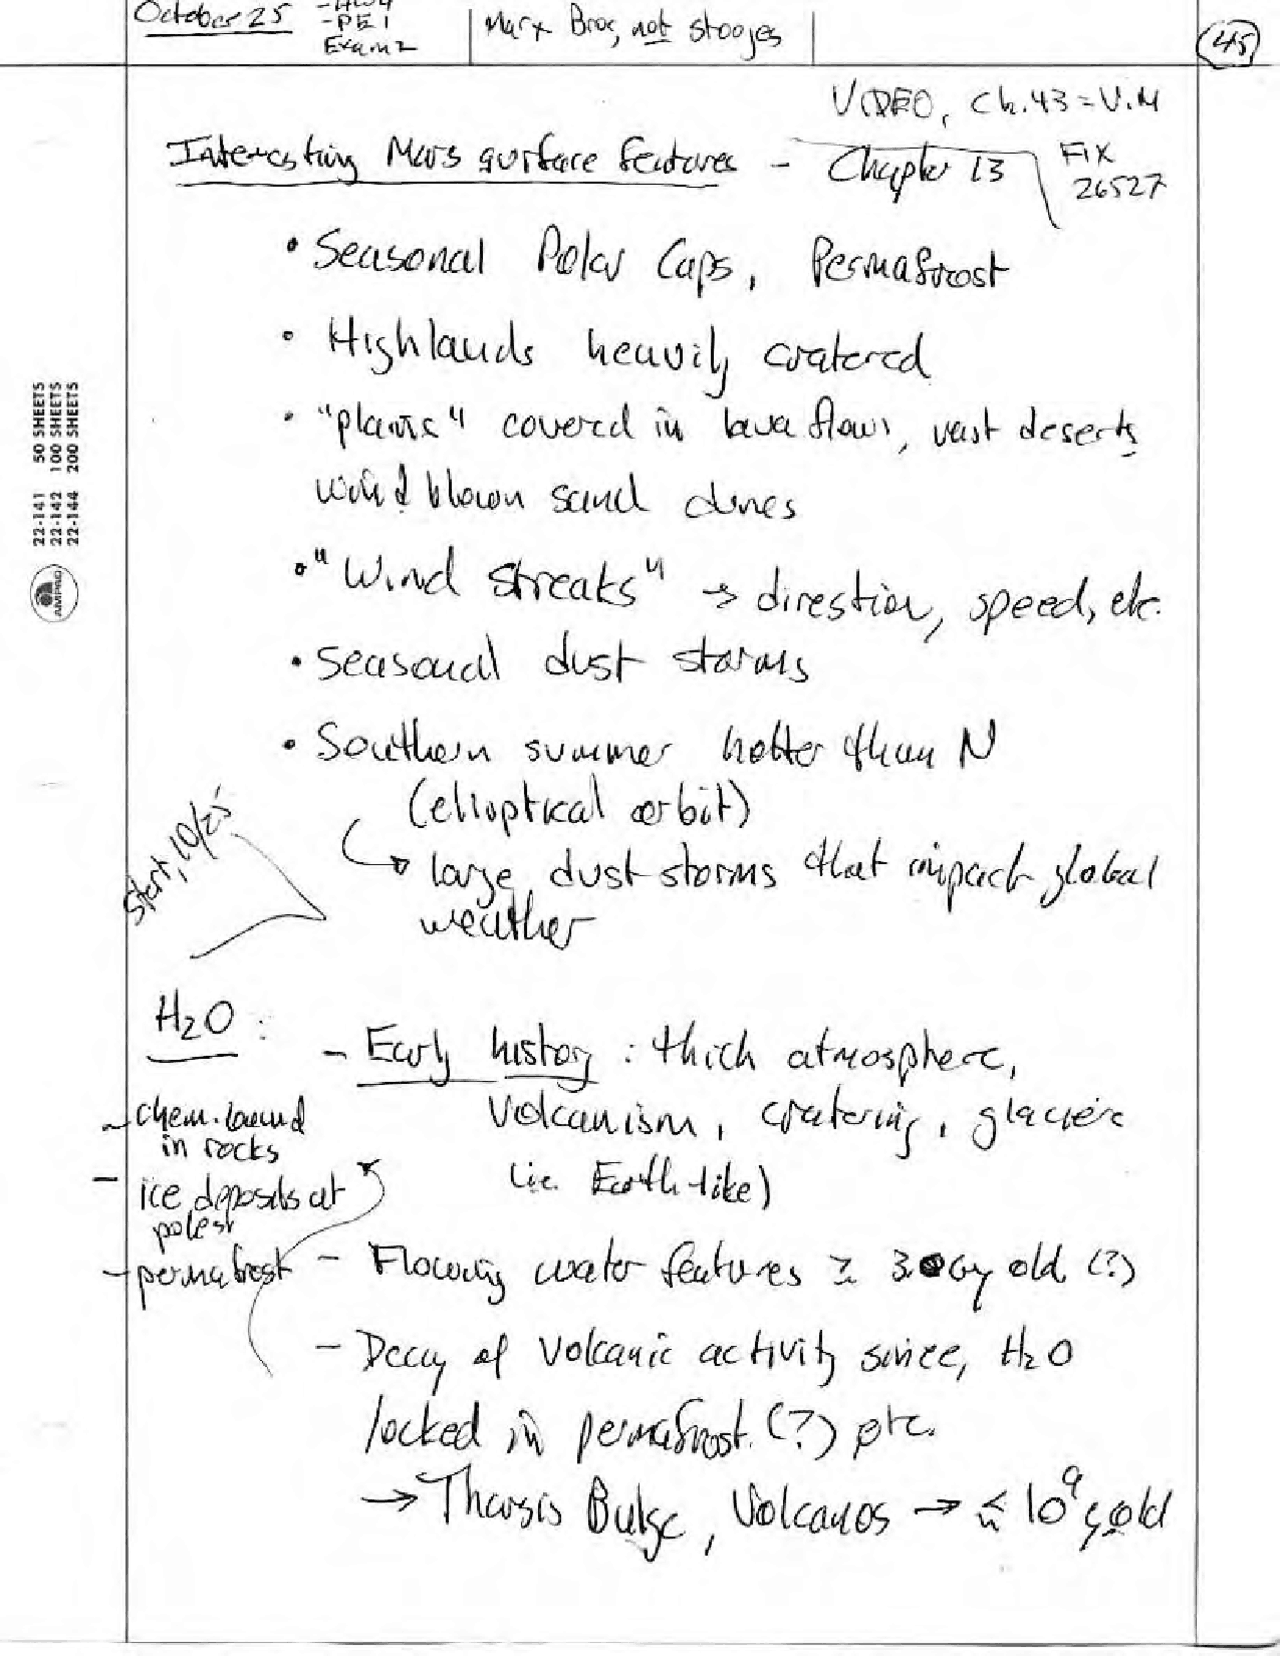 October 25
-HW4
-PE1
Exam 2
Marx Bros, not stooges
45
VIDEO, Ch. 43 = V.M
Interesting Mars surface features - Chapter 13
FIX
26527
• Seasonal Polar Caps, Permafrost
• Highlands heavily cratered
• "plains" covered in lava flows, vast deserts
wind blown sand dunes
• "Wind streaks" → direction, speed, etc.
• Seasonal dust storms
• Southern summer hotter than N
(elliptical orbit)
→ large dust storms that impact global
weather
Start, 10/25
H2O :
- Early history : thick atmosphere,
volcanism, cratering, glaciers
(ie. Earth-like)
- chem. bound
in rocks
- ice deposits at
poles
- permafrost
- Flowing water features ≥ 3. Gy old (?)
- Decay of volcanic activity since, H2O
locked in permafrost (?) etc.
→ Tharsis Bulge, Volcanos → ≤ 10⁹ y old
22-141 50 SHEETS
22-142 100 SHEETS
22-144 200 SHEETS
AMPAD